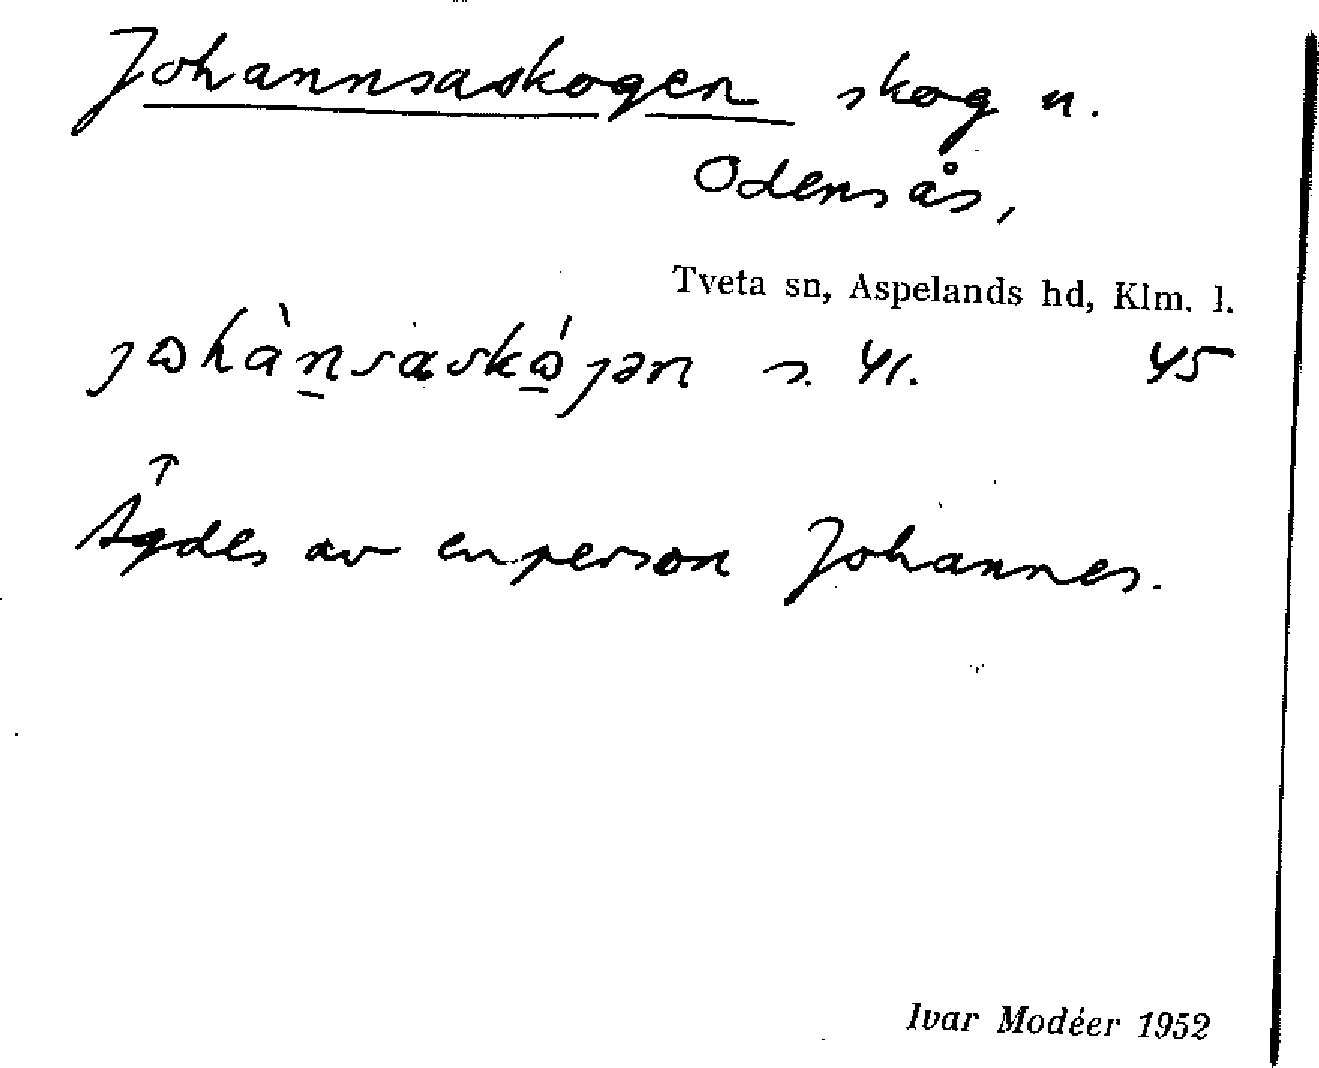 Johannsaskogen skog n.
Odensås,
Tveta sn, Aspelands hd, Klm. l.
jɷhànsaskɷ́jən s. 41. 45
↑
Ägdes av en person Johannes.
Ivar Modéer 1952